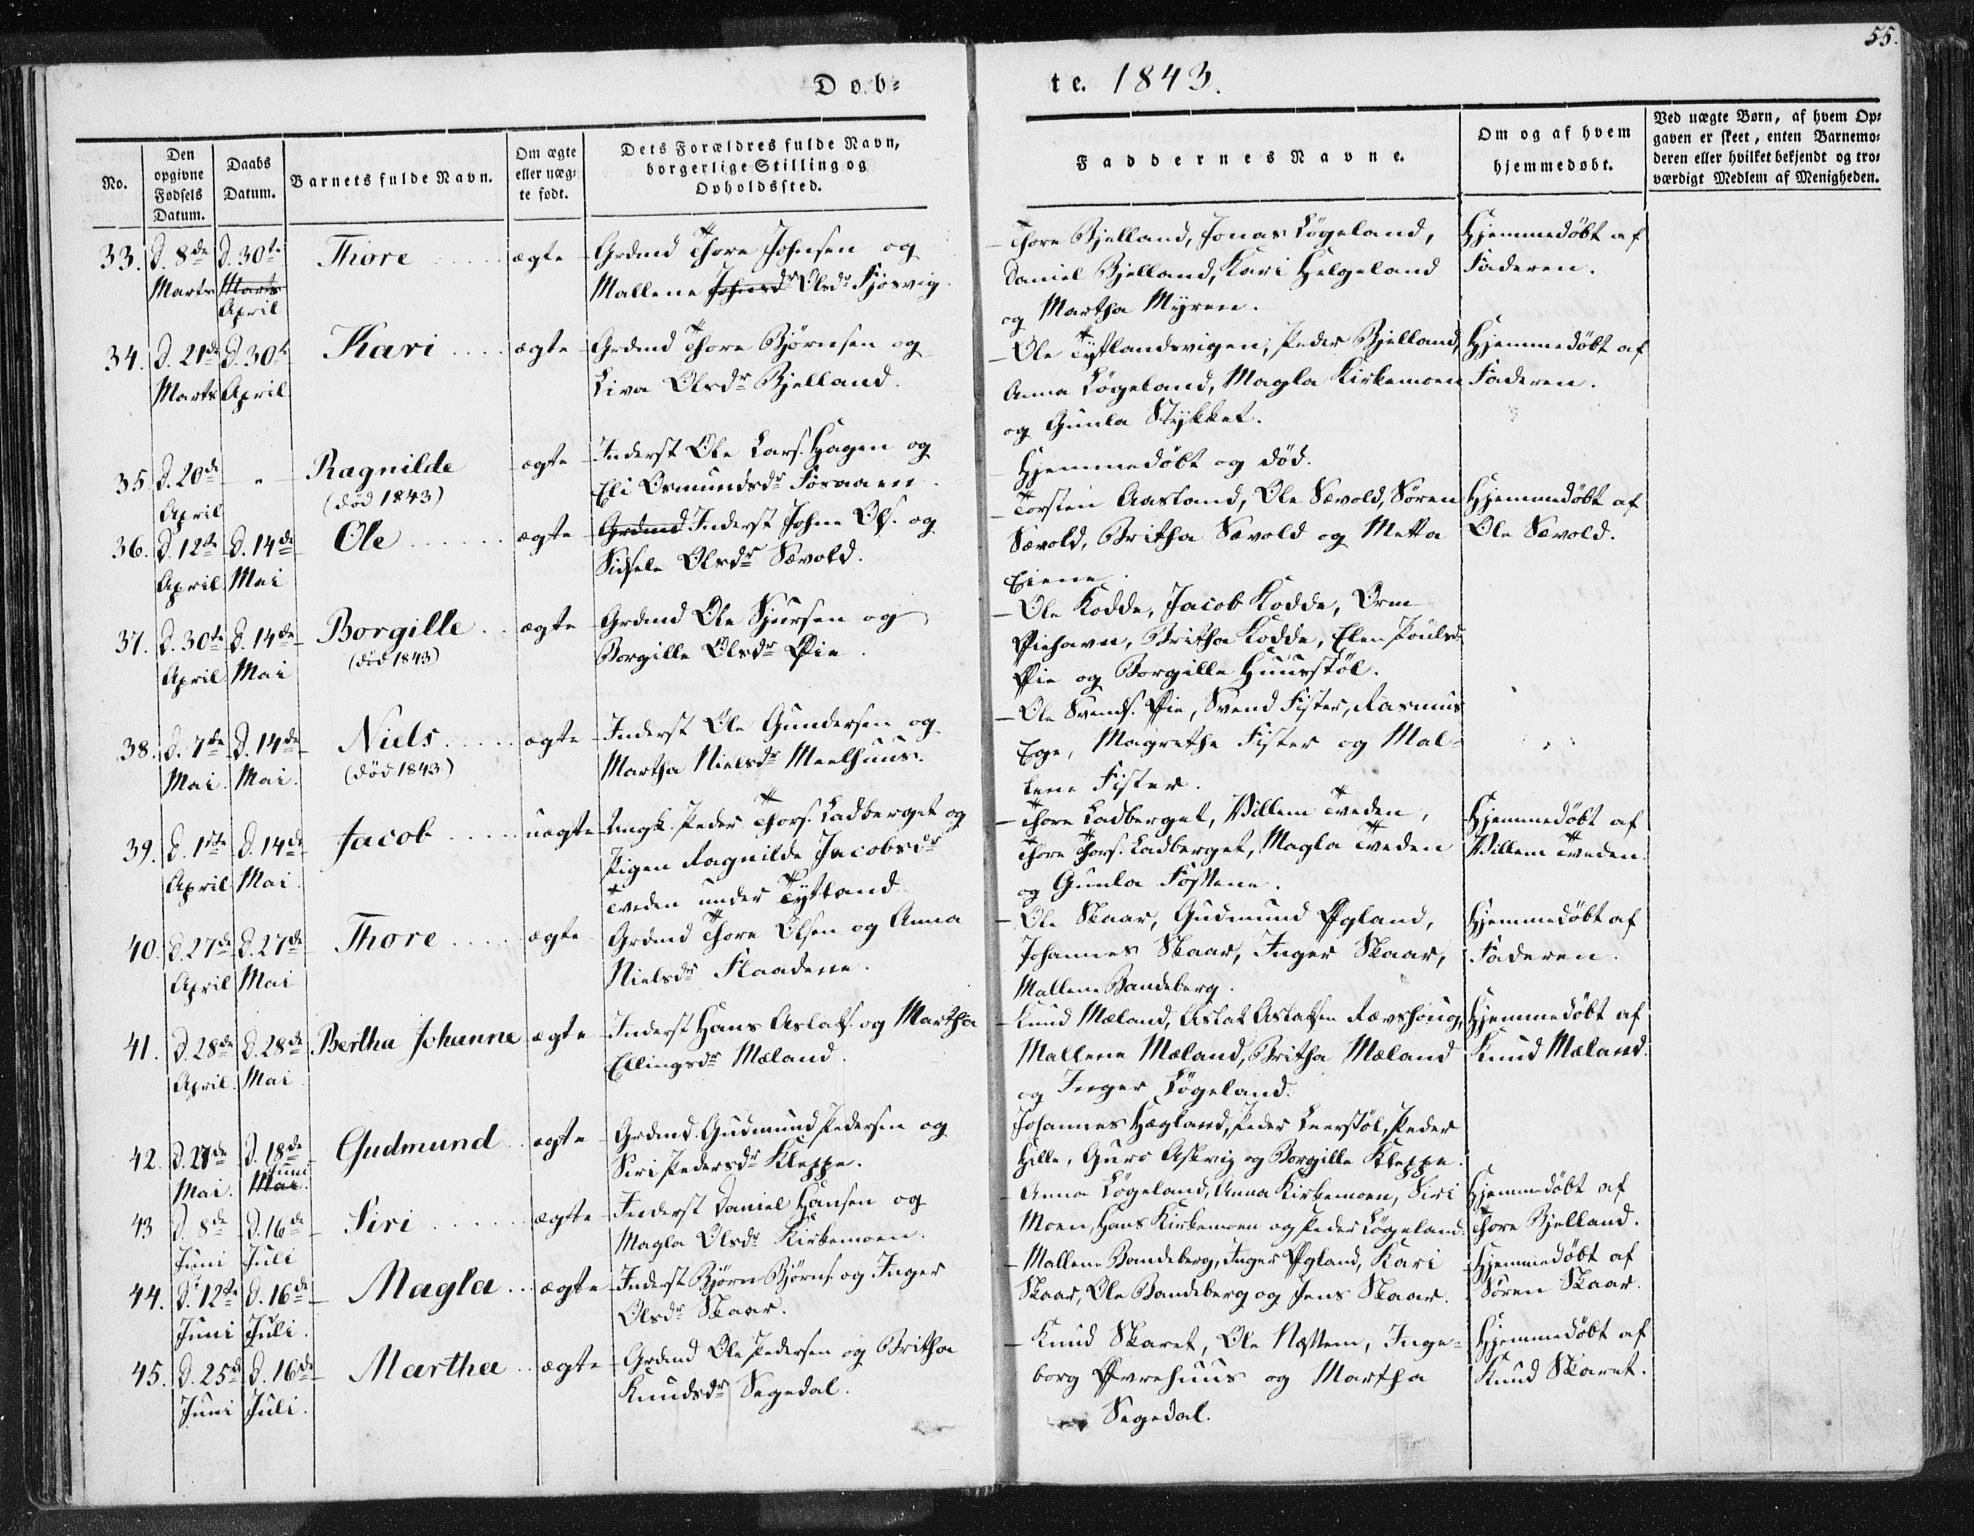 55.
Dob-
te. 1843.
No.
Den opgivne Fødsels Datum.
Daabs Datum.
Barnets fulde Navn.
Om ægte eller uæg-te født.
Dets Forældres fulde Navn, borgerlige Stilling og Opholdssted.
Faddernes Navne.
Om og af hvem hjemmedøbt.
Ved uægte Børn, af hvem Op-
gaven er skeet, enten Barnemo-
deren eller hvilket bekjendt og tro-
værdigt Medlem af Menigheden.
33. d. 8de Marts d. 30te Marts April Thore ægte
Grdmd Thore Johnsen og
Mallene Johnsdr Olsdr Fjøsvig.
Thore Bjelland, Jonas Løgeland,
Daniel Bjelland, Kari Helgeland
og Martha Myren.
Hjemmedøbt af
Faderen.
34. d. 21de Marts d. 30te April Kari ægte
Grdmd Thore Bjørnsen og
Liva Olsdr Bjelland.
Ole Tytlandsvigen, Peder Bjelland,
Anna Løgeland, Magla Kirkemoen
og Gunla Stykket.
Hjemmedøbt af
Faderen.
35 d. 20de April " Ragnilde (død 1843) ægte
Inderst Ole Lars. Hagen og
Eli Osmundsdr Fosaaen.
Hjemmedøbt og død.
36. d. 12te April d. 14de Mai Ole ægte
Grdmd Inderst Johne Ols. og
Sidsele Olsdr Sævold.
Torsten Aasland, Ole Sævold, Søren
Sævold, Britha Sævold og Metta
Eiene.
Hjemmedøbt af
Ole Sævold.
37. d. 30te April d. 14de Mai Borgille (død 1843) ægte
Grdmd Ole Sjursen og
Borgille Olsdr Øie.
Ole Kodde, Jacob Kodde, Orm
Øiehavn, Britha Kodde, Elen Poulsdr
Øie og Borgille Huusstøl.
38. d. 7de Mai. d. 14de Mai. Niels (død 1843) ægte
Inderst Ole Gundersen og
Martha Nielsdr Meelhuus.
Ole Svends. Øie, Svend Fister, Rasmus
Ege, Magrethe Fister og Mal-
lene Fister.
39. d. 1ste April d. 14de Mai Jacob uægte
Ungk. Peder Thors. Ladberget og
Pigen Ragnilde Jacobsdr
Tveden under Tytland
Thore Ladberget, Villem Tveden,
Thore Thors. Ladberget, Magla Tveden
og Gunla Fostene.
Hjemmedøbt af
Villem Tveden.
40. d. 27de April d. 27de Mai Thore ægte
Grdmd Thore Olsen og Anna
Nielsdr Flaadene.
Ole Skaar, Gudmund Øgland,
Johannes Skaar, Inger Skaar,
Mallene Bandeberg.
Hjemmedøbt af
Faderen.
41. d. 28de April. d. 28de Mai Bertha Johanne ægte
Inderst Hans Aslaks. og Martha
Ellingsdr Mæland.
Knud Mæland, Aslak Aslaksen Rævshoug,
Mallene Mæland, Britha Mæland
og Inger Løgeland.
Hjemmedøbt af
Knud Mæland.
42. d. 27de Mai. d. 18de Juni Mai. Gudmund ægte
Grdmd. Gudmund Pedersen og
Siri Pedersdr Kleppe.
Johannes Hægland, Peder Leerstøl, Peder
Hille, Guro Askvig og Borgille Kleppe.
43 d. 8de Juni d. 16de Juli Siri ægte
Inderst Daniel Hansen og
Magla Olsdr Kirkemoen.
Anna Løgeland, Anna Kirkemoen, Siri
Moen, Hans Kirkemoen og Peder Løgeland.
Hjemmedøbt af
Thore Bjelland.
44. d. 12te Juni d. 16de Juli. Magla ægte
Inderst Bjørn Bjørns. og Inger
Olsdr Skaar.
Mallene Bandeberg, Inger Øgland, Kari
Skaar, Ole Bandeberg og Jens Skaar.
Hjemmedøbt af
Søren Skaar.
45. d. 25de Juni d. 16de Juli. Martha ægte
Grdmd Ole Pedersen og Britha
Knudsdr Segedal.
Knud Skaret, Ole Næssem, Inge-
borg Øvrehuus og Martha
Segedal.
Hjemmedøbt af
Knud Skaret.